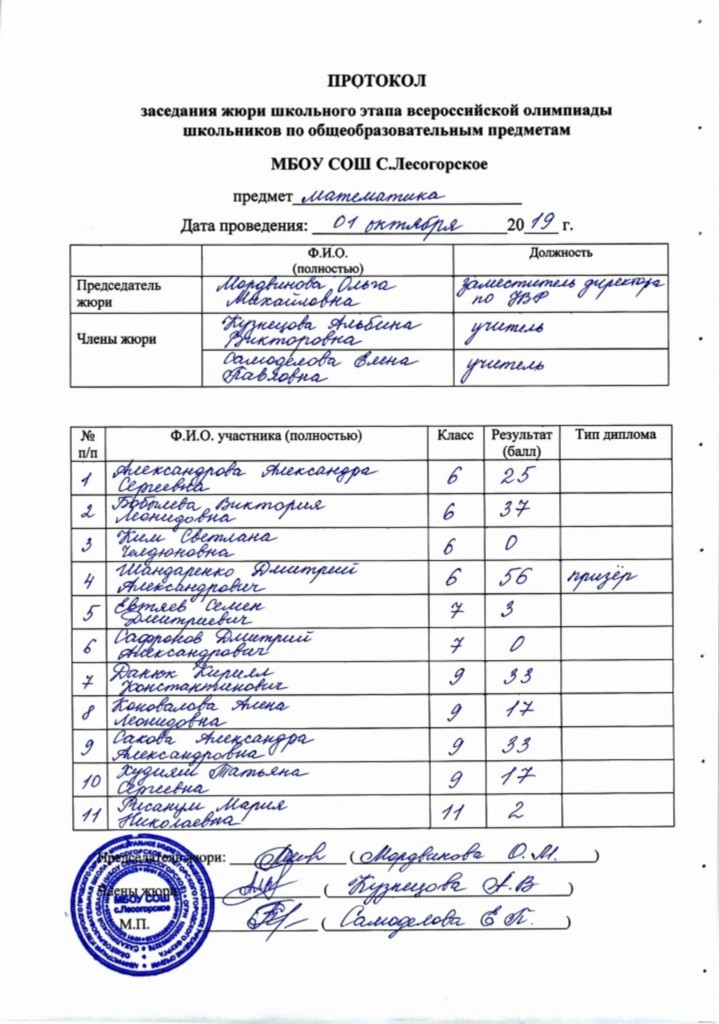 ПРОТОКОЛ
заседания жюри школьного этапа всероссийской олимпиады
школьников по общеобразовательным предметам
МБОУ СОШ С.Лесогорское
предмет математика
Дата проведения: 01 октября 2019 г.
Ф.И.О. Должность
(полностью)
Председатель жюри Мордвинова Ольга Михайловна заместитель директора по УВР
Члены жюри Кузнецова Альбина Викторовна учитель
Самоделова Елена Павловна учитель
№ п/п Ф.И.О. участника (полностью) Класс Результат (балл) Тип диплома
1 Александрова Александра Сергеевна 6 25
2 Бобылева Виктория Леонидовна 6 37
3 Ким Светлана 6 0
4 Шандаренко Дмитрий Александрович 6 56 призёр
5 Евтяев Семен Дмитриевич 7 3
6 Сафронов Дмитрий Александрович 7 0
7 Данюк Кирилл Константинович 9 33
8 Коновалова Алена Леонидовна 9 17
9 Сакова Александра Александровна 9 33
10 Татьяна Сергеевна 9 17
11 Мария Николаевна 11 2
Председатель жюри: ( Мордвинова О.М. )
Члены жюри: ( Кузнецова А.В )
М.П. ( Самоделова Е П. )
МБОУ СОШ
с.Лесогорское